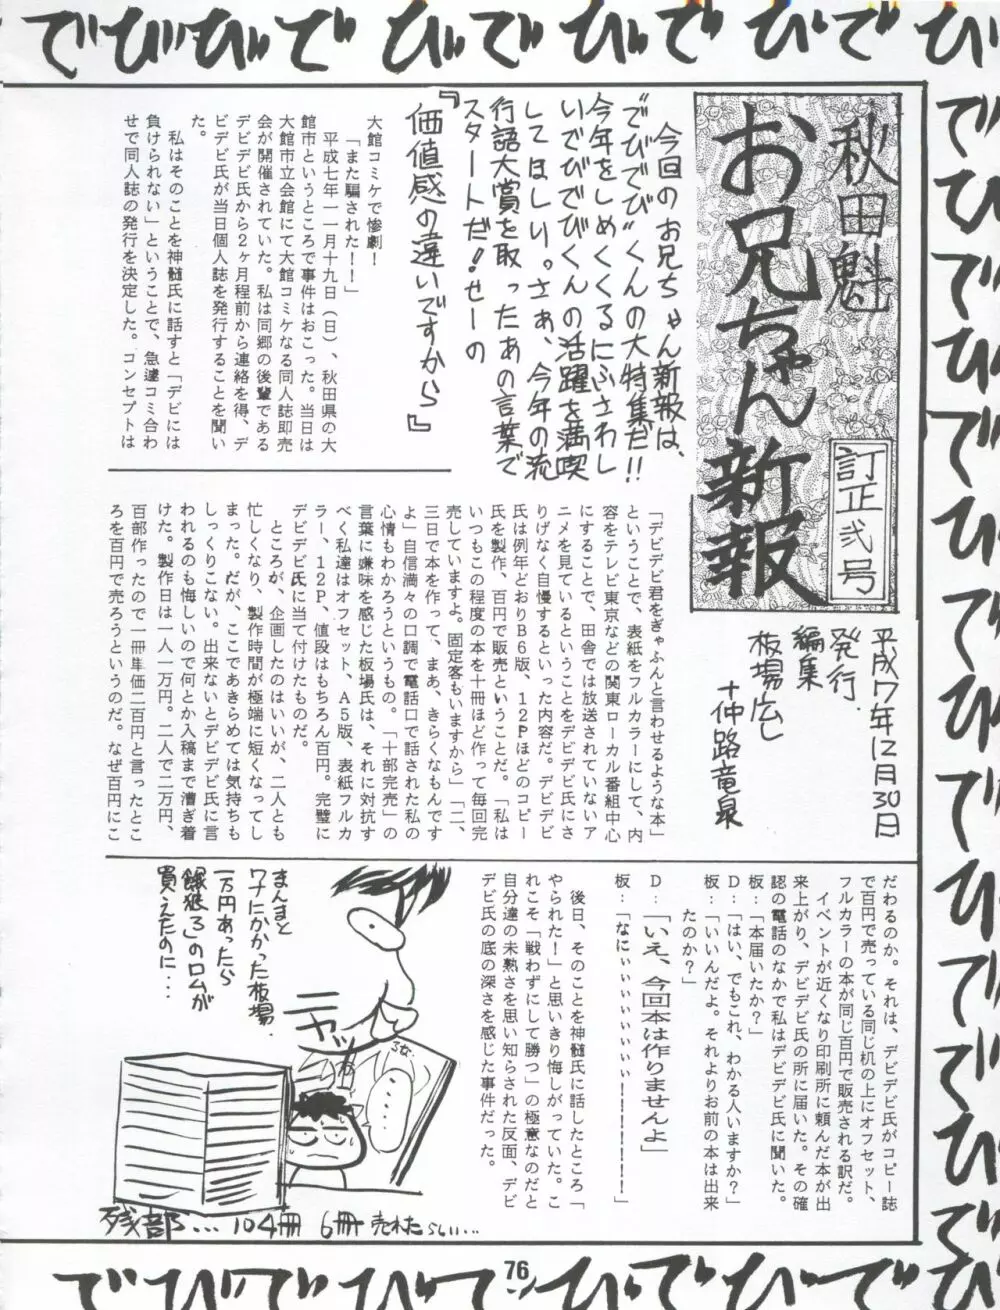 でびびでびでびでびでび
秋田魁
お兄ちゃん新報
訂正弐号
平成7年12月30日
発行.
編集
板場広し
十仲路竜泉
今回のお兄ちゃん新報は、
でびでびくんの大特集だ!!
今年をしめくくるにふさわし
いでびでびくんの活躍を満喫
してほしい。さぁ、今年の流
行語大賞を取ったあの言葉で
スタートだ!せーの
『価値感の違いですから』
大館コミケで惨劇!
「また騙された!!」
平成七年一一月十九日(日)、秋田県の大
館市というところで事件はおこった。当日は
大館市立会館にて大館コミケなる同人誌即売
会が開催されていた。私は同郷の後輩である
デビデビ氏から2ヶ月程前から連絡を得、デ
ビデビ氏が当日個人誌を発行することを聞い
た。
私はそのことを神髄氏に話すと「デビには
負けられない」ということで、急遽コミ合わ
せで同人誌の発行を決定した。コンセプトは
「デビデビ君をぎゃふんと言わせるような本」
ということで、表紙をフルカラーにして、内
容をテレビ東京などの関東ローカル番組中心
にすることで、田舎では放送されていないア
ニメを見ているということをデビデビ氏にさ
りげなく自慢するといった内容だ。デビデビ
氏は例年どおりB6版、12Pほどのコピー
氏を製作、百円で販売ということだ。「私は
いつもこの程度の本を十冊ほど作って毎回完
売していますよ。固定客もいますから」「二、
三日で本を作って、まあ、きらくなもんです
よ」自信満々の口調で電話口で話された私の
心情もわかろうというもの。「十部完売」の
言葉に嫌味を感じた板場氏は、それに対抗す
べく私達はオフセット、A5版、表紙フルカ
ラー、12P、値段はもちろん百円。完璧に
デビデビ氏に当て付けたものだ。
ところが、企画したのはいいが、二人とも
忙しくなり、製作時間が極端に短くなってし
まった。だが、ここであきらめては気持ちも
しっくりこない。出来ないとデビデビ氏に言
われるのも悔しいので何とか入稿まで漕ぎ着
けた。製作日は一人一万円。二人で二万円、
百部作ったので一冊単価二百円と言ったとこ
ろを百円で売ろうというのだ。なぜ百円にこ
だわるのか。それは、デビデビ氏がコピー誌
で百円で売っている同じ机の上にオフセット、
フルカラーの本が同じ百円で販売される訳だ。
イベントが近くなり印刷所に頼んだ本が出
来上がり、デビデビ氏の所に届いた。その確
認の電話のなかで私はデビデビ氏に聞いた。
板:「本届いたか?」
D:「はい、でもこれ、わかる人いますか?」
板:「いいんだよ。それよりお前の本は出来
たのか?」
D:「いえ、今回本は作りませんよ」
板:「なにぃぃぃぃぃぃぃ!!!!!!!」
後日、そのことを神髄氏に話したところ「
やられた!」と思いきり悔しがっていた。こ
れこそ「戦わずにして勝つ」の極意なのだと
自分達の未熟さを思い知らされた反面、デビ
デビ氏の底の深さを感じた事件だった。
まんまと
ワナにかかった板場.
一万円あったら
餓狼3のロムが
買えたのに…
ニャッ
……
残部…104冊 6冊売れたらしい…
76